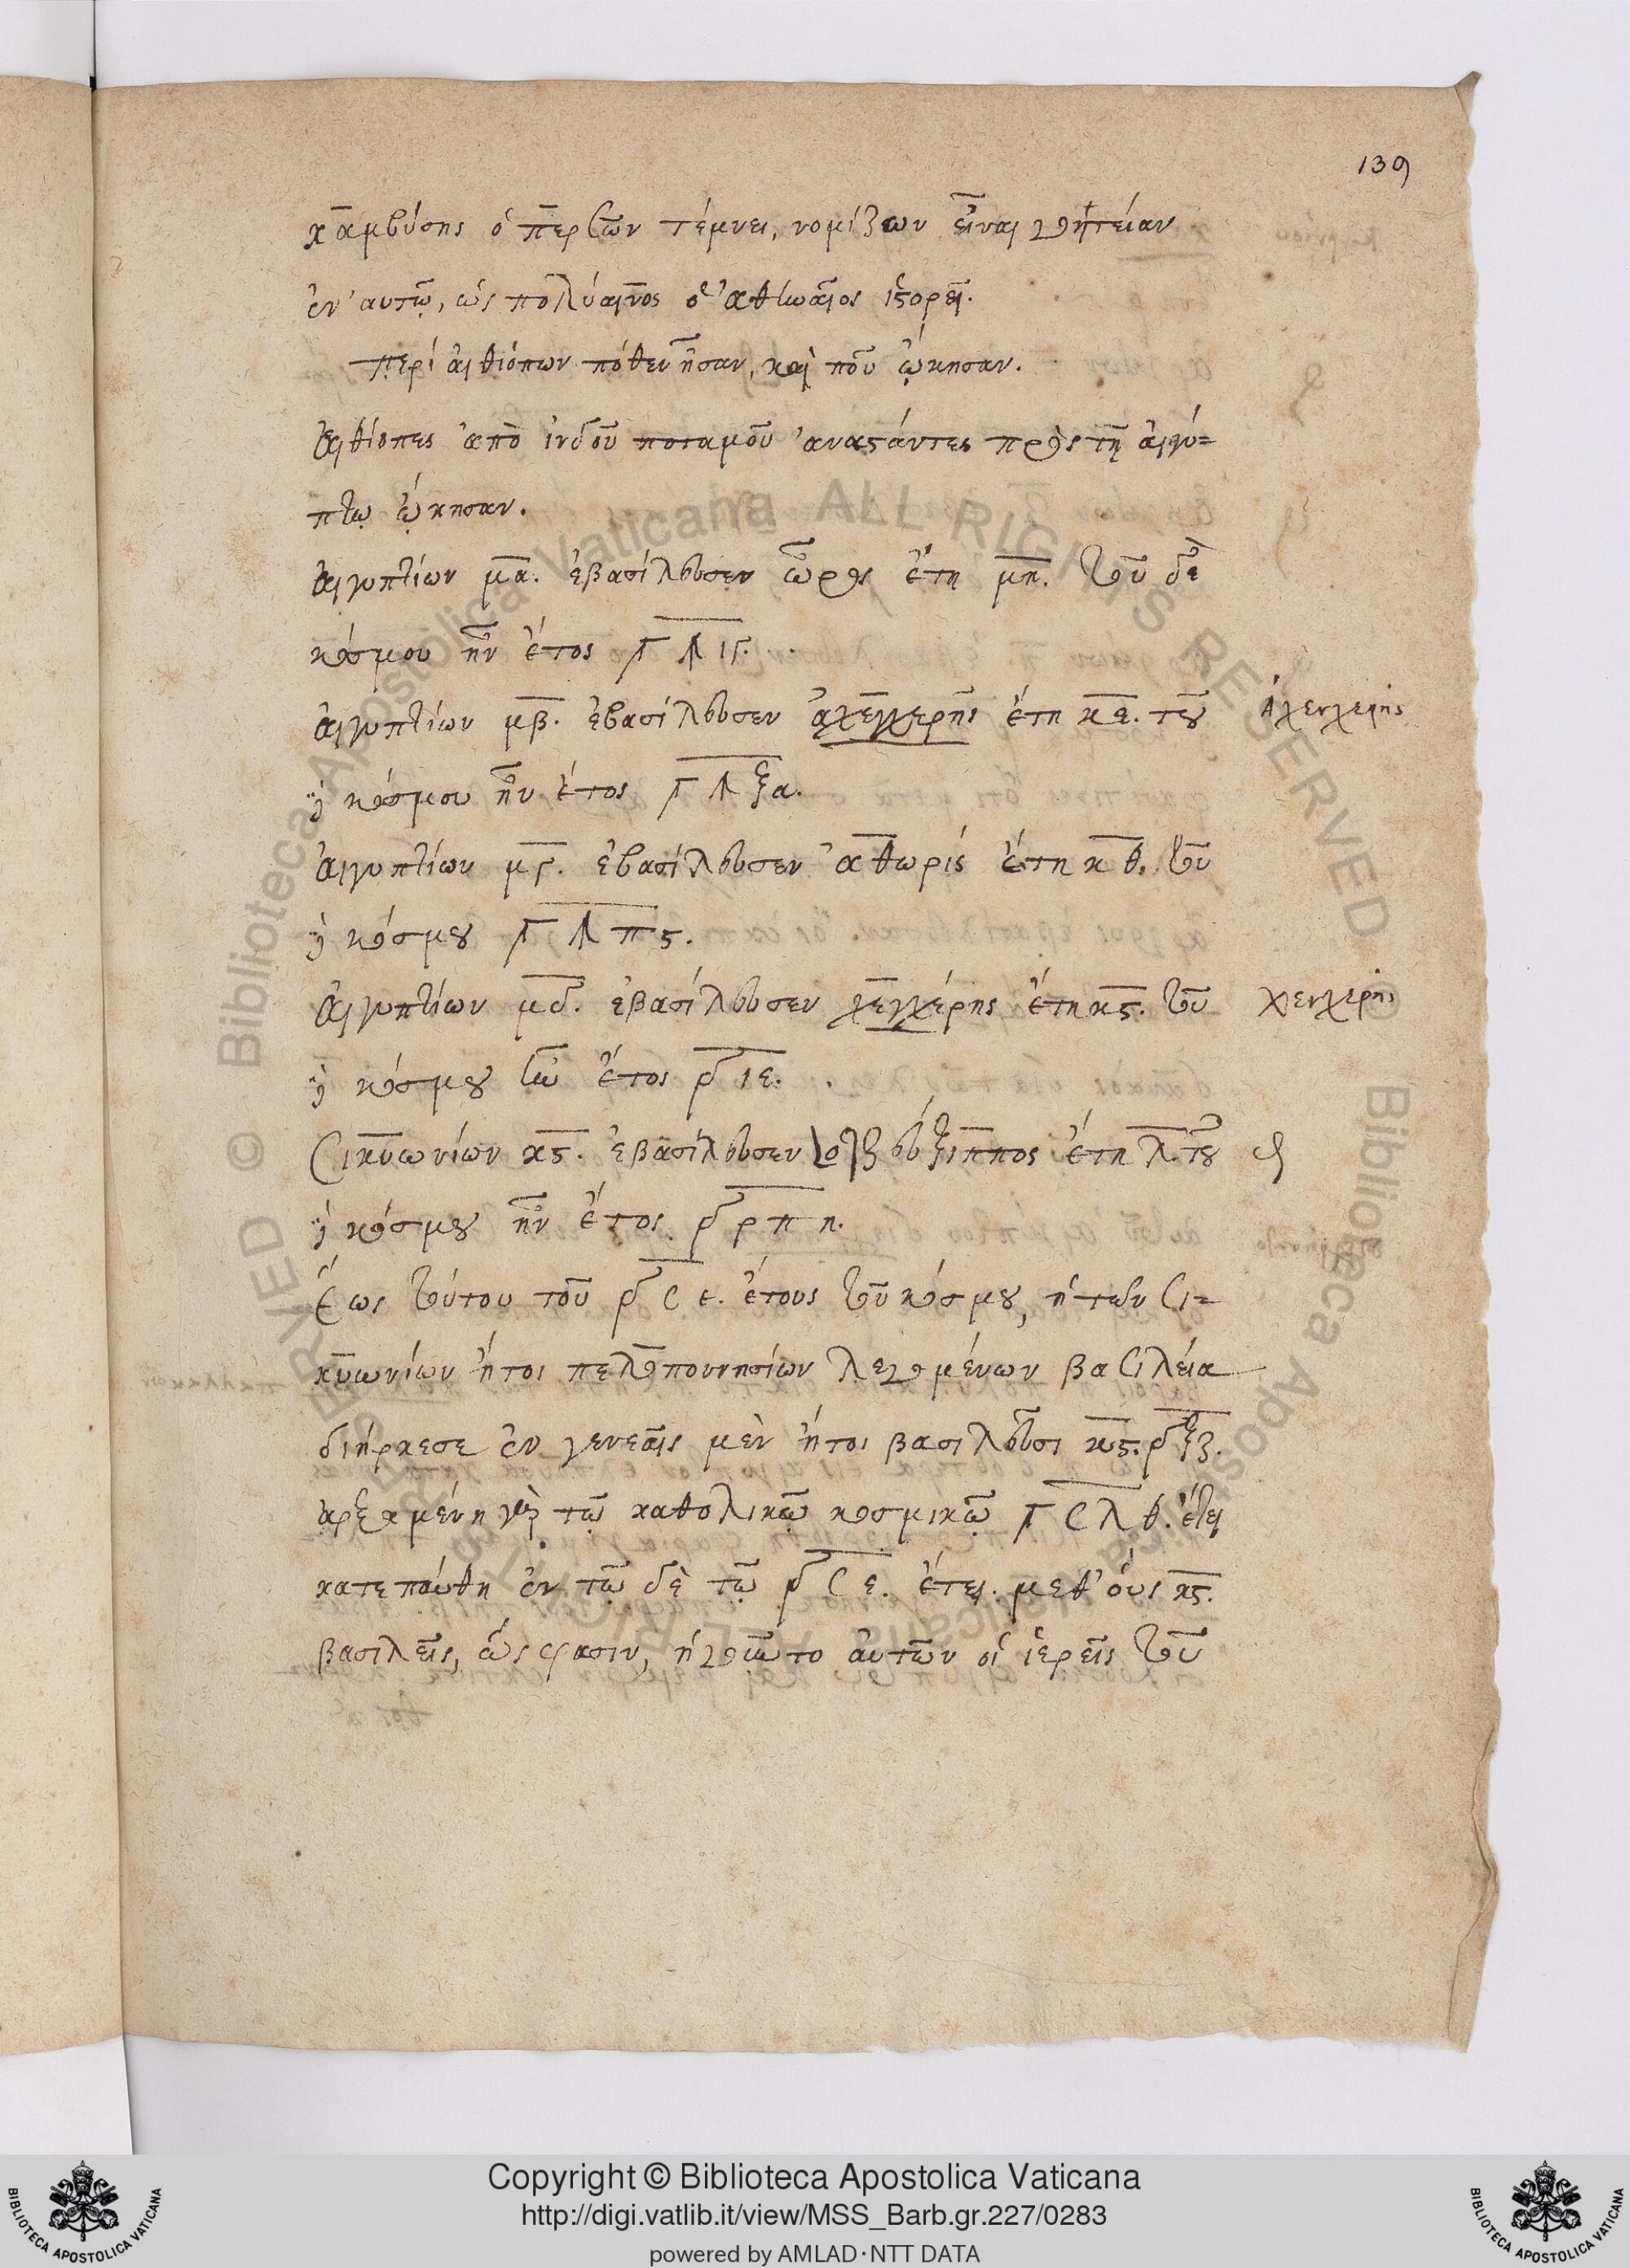 139
καμβύσης ὁ περσῶν τέμνει, νομίζων εἶναι γοητείαν
ἐν αυτῷ, ὡς πολύαινος ὁ ἀθηναῖος ἱστορεῖ.
περί αἰθιόπων πόθεν ἦσαν, καὶ ποῦ ᾤκησαν.
Αἰθίοπες ἀπὸ ἰνδοῦ ποταμοῦ ἀναστάντες πρὸς τῇ αἰγύ=
πτῳ ᾤκησαν.
Αἰγυπτίων μα. ἐβασίλευσεν ὧρος ἔτη μη. τοῦ δὲ
κόσμου ἦν ἔτος ͵γ ϡ ιγ.
αἰγυπτίων μβ. ἐβασίλευσεν ἀχεγχερῆς ἔτη κε. τοῦ
Ἀχενχερής
δὲ κόσμου ἦν ἔτος ͵γ ϡ ξα.
αἰγυπτίων μγ. ἐβασίλευσεν ἀθωρίς ἔτη κθ. τοῦ
δὲ κόσμου ͵γ ϡ πϛ.
Αἰγυπτίων μδ. ἐβασίλευσεν χεγχέρης ἔτη κϛ. τοῦ
χενχερὴς
δὲ κόσμου ἦν ἔτος ͵δ ιε.
Σικυωνίων κϛ. ἐβασίλευσεν ζεύξιππος ἔτη λ. τοῦ
δὲ κόσμου ἦν ἔτος ͵δ ρπη.
Ἕως τούτου τοῦ ͵δ σ ε. ἔτους τοῦ κόσμου, ἡ τῶν σι=
κυωνίων ἤτοι πελοπουνησίων λεγομένων βασιλεία
διήρκεσε ἐν γενεαῖς μὲν ἤτοι βασιλεῦσι κϛ. ϡξζ.
ἀρξαμένη γὰρ τῷ καθολικῷ κοσμικῷ ͵γ σ λ θ. ἔτει
κατεπαύθη ἐν τῷ δὲ τῷ ͵δ σ ε. ἔτει. μεθ' οὓς κϛ.
βασιλεῖς, ὥς φασιν, ἡγοῦντο αὐτῶν οἱ ἱερεῖς τοῦ
Copyright © Biblioteca Apostolica Vaticana
http://digi.vatlib.it/view/MSS_Barb.gr.227/0283
powered by AMLAD·NTT DATA